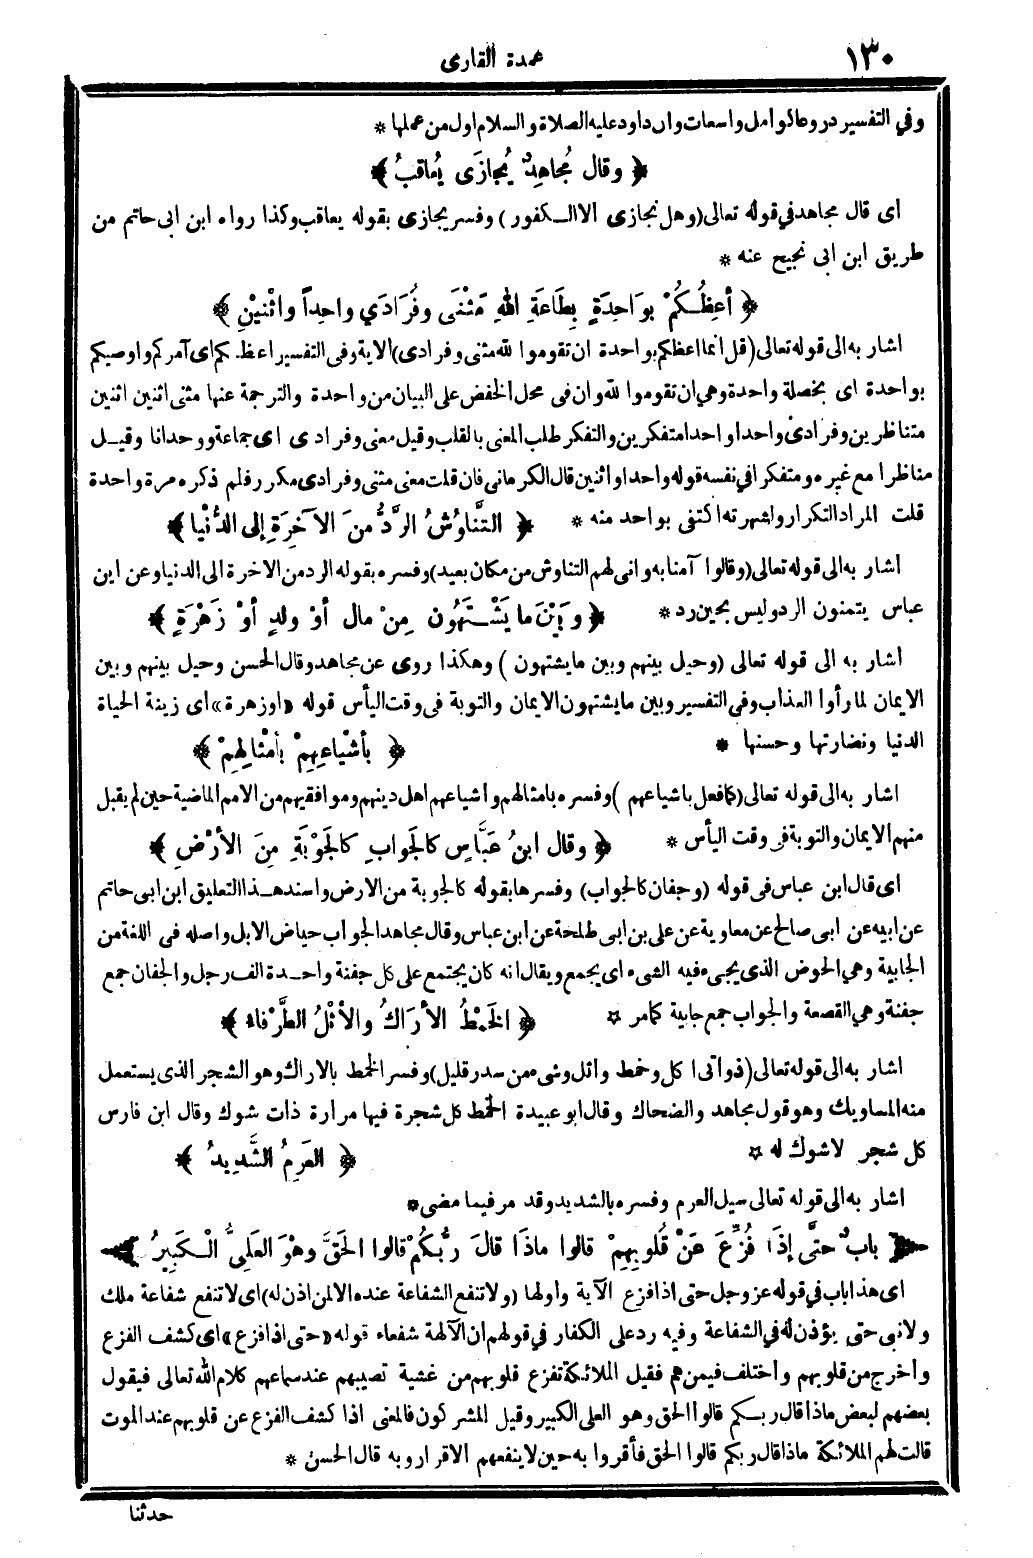 ١٣٠
عمدة القارى
وفي التفسير دروعا كوامل واسعات وان داود عليه الصلاة والسلام اول من عملها *
﴿ وقال مُجاهِدٌ يُجازَى يُعاقبُ ﴾
أى قال مجاهد في قوله تعالى (وهل نجازى الا الكفور) وفسر يجازى بقوله يعاقب وكذا رواه ابن ابى حاتم من
طريق ابن ابى نجيح عنه *
﴿ أعِظُكُمْ بوَاحِدَةٍ بِطَاعَةِ اللهِ مَثْنَى وفُرَادَي واحِداً واثْنيْنِ ﴾
اشار به الى قوله تعالى (قل انما اعظكم بواحدة ان تقوموا لله مثنى وفرادى) الآية وفى التفسير اعظكم اى آمركم واوصيكم
بواحدة اى بخصلة واحدة وهي ان تقوموا لله وان فى محل الخفض على البيان من واحدة والترجمة عنها مثنى اثنين اثنين
متناظرين وفرادى واحدا واحدا متفكرين والتفكر طلب المعنى بالقلب وقيل معنى وفرادى اى جماعة ووحدانا وقيل
مناظرا مع غيره ومتفكرا في نفسه قوله واحدا واثنين قال الكرمانى فان قلت معنى مثنى وفرادى مكرر فلم ذكره مرة واحدة
قلت المراد التكرار ولشهرته اكتفى بواحد منه * ﴿ التَّناوُشُ الرَّدُّ منَ الآخِرَةِ إلى الدُّنْيا ﴾
أشار به الى قوله تعالى (وقالوا آمنا به وانى لهم التناوش من مكان بعيد) وفسره بقوله الرد من الاخرة الى الدنيا وعن ابن
عباس يتمنون الرد وليس بحين رد * ﴿ وبَيْنَ ما يَشْتَهُون مِنْ مال أوْ ولدٍ أوْ زَهْرَةٍ ﴾
أشار به الى قوله تعالى (وحيل بينهم وبين ما يشتهون) وهكذا روى عن مجاهد وقال الحسن وحيل بينهم وبين
الايمان لما رأوا العذاب وفى التفسير وبين ما يشتهون الايمان والتوبة فى وقت اليأس قوله «او زهرة» اى زينة الحياة
الدنيا ونضارتها وحسنها * ﴿ بأشْياعِهِمْ بأمْثالِهِمْ ﴾
اشار به الى قوله تعالى (كما فعل باشياعهم) وفسره بامثالهم واشياعهم اهل دينهم وموافقيهم من الامم الماضية حين لم يقبل
منهم الايمان والتوبة فى وقت اليأس * ﴿ وقال ابنُ عَبَّاسٍ كالجَوابِ كالجَوْبَةِ مِنَ الأرْضِ ﴾
اى قال ابن عباس فى قوله (وجفان كالجواب) وفسرها بقوله كالجوبة من الارض واسند هذا التعليق ابن ابى حاتم
عن ابيه عن ابى صالح عن معاوية عن على بن ابى طلحة عن ابن عباس وقال مجاهد الجواب حياض الابل واصله فى اللغة من
الجابية وهي الحوض الذى يجبى فيه الشىء اى يجمع ويقال انه كان يجتمع على كل جفنة واحدة الف رجل والجفان جمع
جفنة وهي القصعة والجواب جمع جابية كما مر * ﴿ الخَمْطُ الأرَاكُ والأثْلُ الطَّرْفاءُ ﴾
أشار به الى قوله تعالى (ذواتى اكل وخمط واثل وشىء من سدر قليل) وفسر الخمط بالاراك وهو الشجر الذى يستعمل
منه المساويك وهو قول مجاهد والضحاك وقال ابو عبيدة الخمط كل شجرة فيها مرارة ذات شوك وقال ابن فارس
كل شجر لا شوك له * ﴿ العَرِمُ الشَّدِيدُ ﴾
اشار به الى قوله تعالى سيل العرم وفسره بالشديد وقد مر فيما مضى *
﴿ بابٌ حتَّى إذَا فُزِّعَ عَنْ قُلُوبِهِمْ قالوا ماذَا قالَ ربُّكُمْ قالوا الحَقَّ وهْوَ العَلِىُّ الْكَبِيرُ ﴾
اى هذا باب في قوله عز وجل حتى اذا فزع الآية وأولها (ولا تنفع الشفاعة عنده الا لمن اذن له) اى لا تنفع شفاعة ملك
ولا نبى حتى يؤذن له في الشفاعة وفيه رد على الكفار في قولهم ان الآلهة شفعاء قوله «حتى اذا فزع» اى كشف الفزع
وأخرج من قلوبهم واختلف فيمن هم فقيل الملائكة تفزع قلوبهم من غشية تصيبهم عند سماعهم كلام الله تعالى فيقول
بعضهم لبعض ماذا قال ربكم قالوا الحق وهو العلى الكبير وقيل المشركون فالمعنى اذا كشف الفزع عن قلوبهم عند الموت
قالت لهم الملائكة ماذا قال ربكم قالوا الحق فأقروا به حين لا ينفعهم الاقرار وبه قال الحسن *
حدثنا